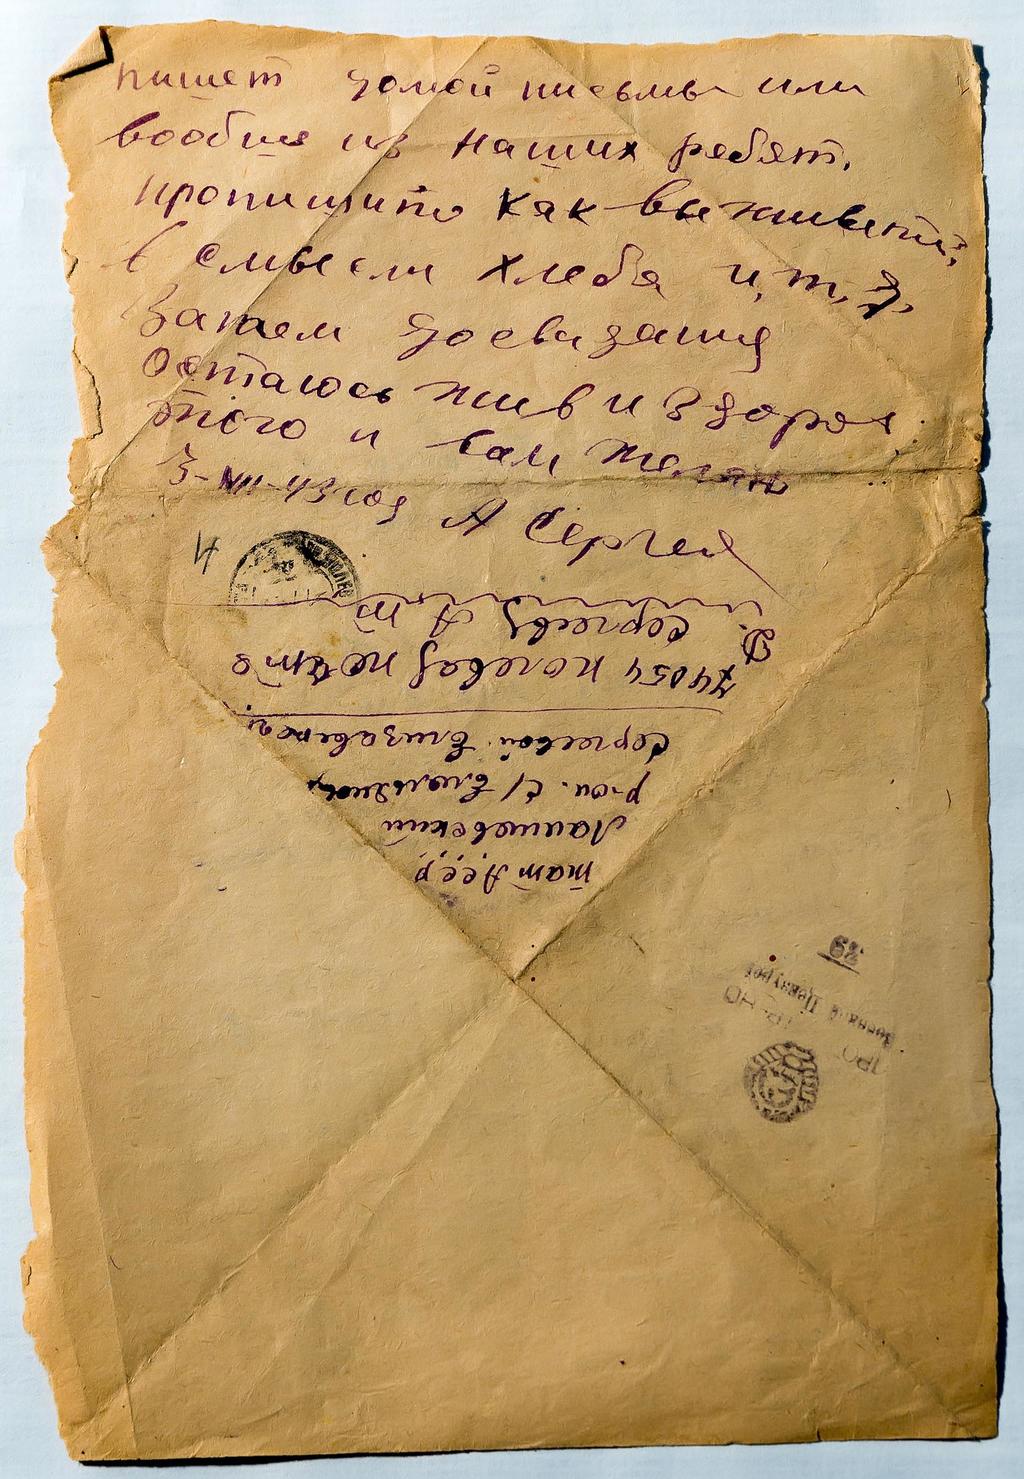 пишет домой письмы или
вообще из наших ребят.
пропишите как вы живете,
в смысли хлеба и, т, д,
Затем досвидания
Остаюсь жив и здоров
того и вам желаю
3-VIII-43 год А Сергеев
тат А,с,с,р,
Лаишевский
р-он. с/
Сергеевой Елизавете
74054 полевая почта
Сергеев А
Военной Цензурой